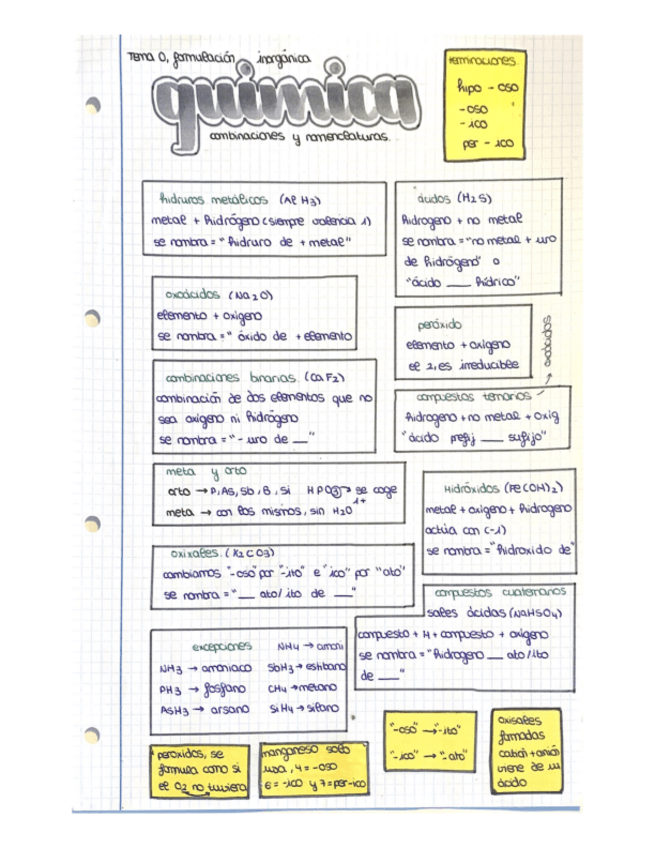 Tema 0, formulación inorgánica
química
combinaciones y nomenclaturas.
terminaciones
hipo - oso
-oso
-ico
per - ico
hidruros metálicos (AlH3)
metal + hidrógeno (siempre valencia 1)
se nombra = "hidruro de + metal"
ácidos (H2S)
hidrogeno + no metal
se nombra = "no metal + uro
de hidrógeno" o
"ácido ___ hídrico"
oxoácidos (Na2O)
elemento + oxigeno
se nombra = "óxido de + elemento
peróxido
elemento + oxigeno
el 2, es irreducible
oxoácidos
combinaciones binarias (CaF2)
combinación de dos elementos que no
sea oxígeno ni hidrógeno
se nombra = "- uro de __"
compuestos ternarios
hidrogeno + no metal + oxig
"ácido prefij ___ sufijo"
meta y orto
orto → P, As, Sb, B, Si HPO3 → se coge
1+
meta → con los mismos, sin H2O
Hidróxidos (Fe(OH)2)
metal + oxigeno + hidrogeno
actúa con (-1)
se nombra = "hidroxido de"
oxixales (K2CO3)
cambiamos "-oso" por "-ito" e "ico" por "ato"
se nombra = "__ ato/ito de __"
compuestos cuaternarios
sales ácidas (NaHSO4)
compuesto + H + compuesto + oxigeno
se nombra = "hidrogeno __ ato/ito
de __"
excepciones NH4 → amoni
NH3 → amoniaco SbH3 → estibano
PH3 → fosfano CH4 → metano
AsH3 → arsano SiH4 → silano
peroxidos, se
formula como si
el O2 no tuviera
manganeso solo
usa, 4 = -oso
6 = -ico y 7 = per-ico
"-oso" → "-ito"
"-ico" → "-ato"
oxisales
formadas
catión + anión
viene de un
ácido